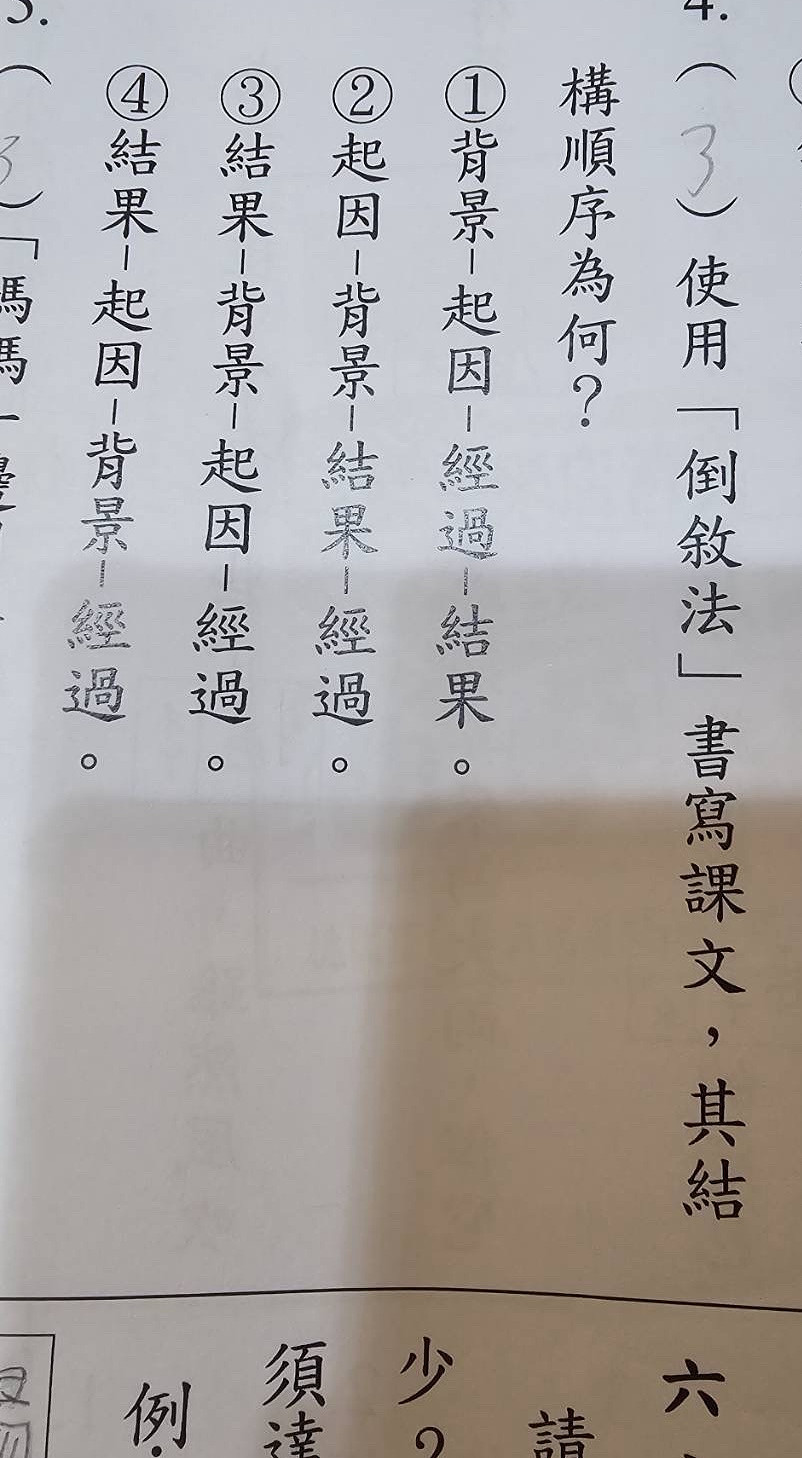 4.(3)使用「倒敘法」書寫課文,其結
構順序為何?
①背景-起因-經過-結果。
②起因-背景-結果-經過。
③結果-背景-起因-經過。
④結果-起因-背景-經過。
(3)「媽媽一邊
六
請
少?
須達
例